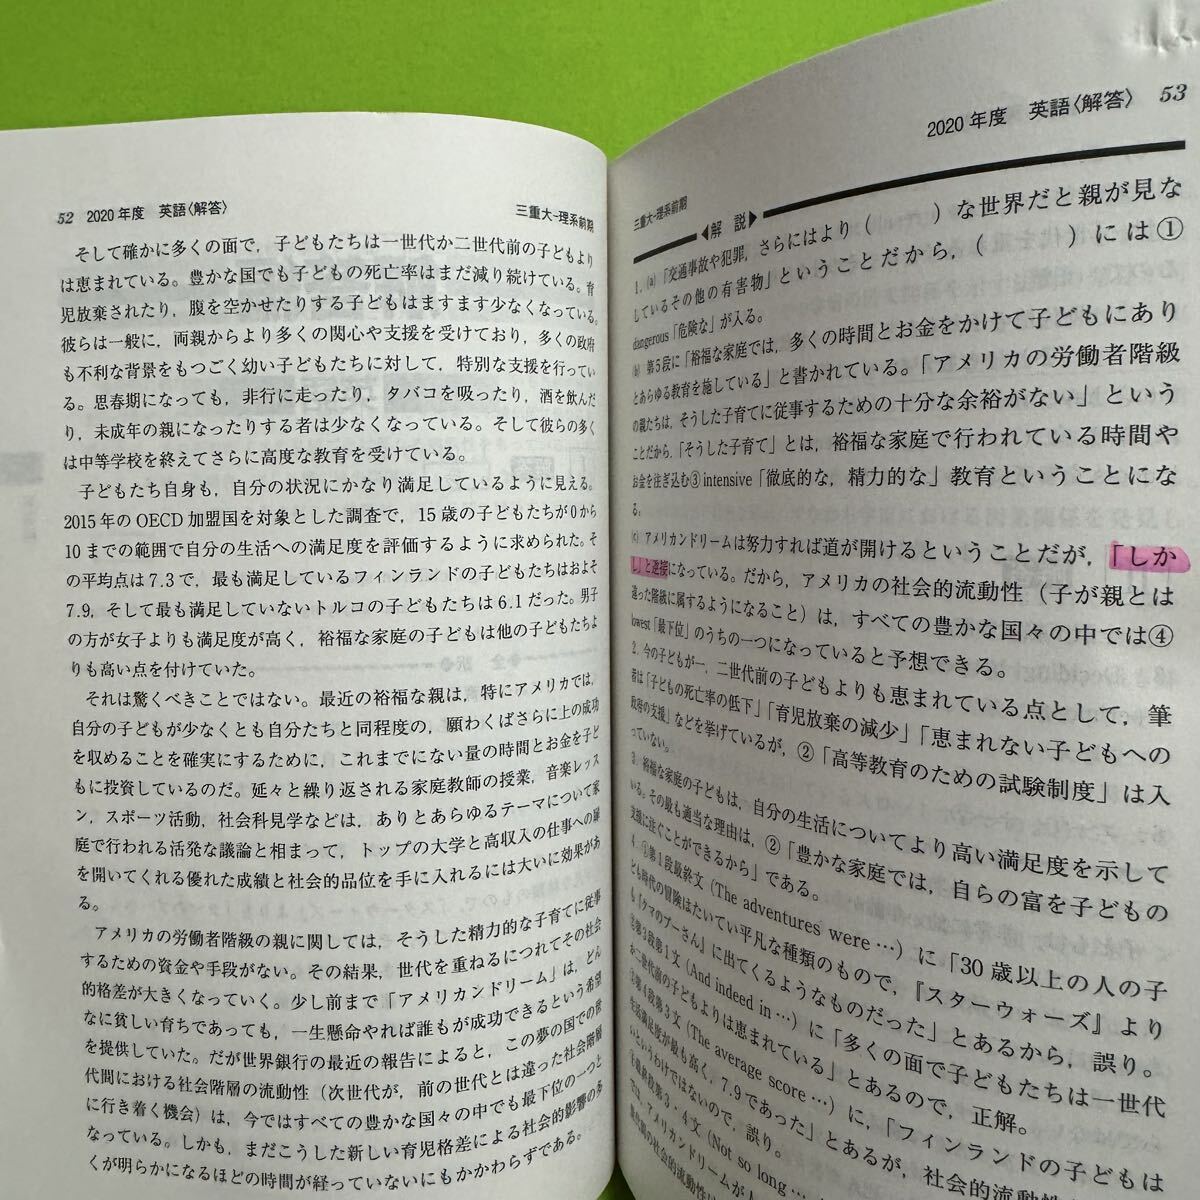 52 2020年度 英語〈解答〉 三重大-理系前期
そして確かに多くの面で，子どもたちは一世代か二世代前の子どもより
は恵まれている。豊かな国でも子どもの死亡率はまだ減り続けている。育
児放棄されたり，腹を空かせたりする子どもはますます少なくなっている。
彼らは一般に，両親からより多くの関心や支援を受けており，多くの政府
も不利な背景をもつごく幼い子どもたちに対して，特別な支援を行ってい
る。思春期になっても，非行に走ったり，タバコを吸ったり，酒を飲んだ
り，未成年の親になったりする者は少なくなっている。そして彼らの多く
は中等学校を終えてさらに高度な教育を受けている。
子どもたち自身も，自分の状況にかなり満足しているように見える。
2015年のOECD加盟国を対象とした調査で，15歳の子どもたちが0から
10までの範囲で自分の生活への満足度を評価するように求められた。そ
の平均点は7.3で，最も満足しているフィンランドの子どもたちはおよそ
7.9，そして最も満足していないトルコの子どもたちは6.1だった。男子
の方が女子よりも満足度が高く，裕福な家庭の子どもは他の子どもたちよ
りも高い点を付けていた。
それは驚くべきことではない。最近の裕福な親は，特にアメリカでは，
自分の子どもが少なくとも自分たちと同程度の，願わくばさらに上の成功
を収めることを確実にするために，これまでにない量の時間とお金を子ど
もに投資しているのだ。延々と繰り返される家庭教師の授業，音楽レッス
ン，スポーツ活動，社会科見学などは，ありとあらゆるテーマについて家
庭で行われる活発な議論と相まって，トップの大学と高収入の仕事への扉
を開いてくれる優れた成績と社会的品位を手に入れるには大いに効果があ
る。
アメリカの労働者階級の親に関しては，そうした精力的な子育てに従事
するための資金や手段がない。その結果，世代を重ねるにつれてその社会
的格差が大きくなっていく。少し前まで「アメリカンドリーム」は，どん
なに貧しい育ちであっても，一生懸命やれば誰もが成功できるという希望
を提供していた。だが世界銀行の最近の報告によると，この夢の国での世
代間における社会階層の流動性（次世代が，前の世代とは違った社会階層
に行き着く機会）は，今ではすべての豊かな国々の中でも最下位の一つと
なっている。しかも，まだこうした新しい育児格差による社会的影響の多
くが明らかになるほどの時間が経っていないにもかかわらずである。
2020年度 英語〈解答〉 53
三重大-理系前期
◀解 説▶
1．(a)「交通事故や犯罪，さらにはより（ ）な世界だと親が見な
しているその他の有害物」ということだから，（ ）には①
dangerous「危険な」が入る。
(b) 第5段に「裕福な家庭では，多くの時間とお金をかけて子どもにあり
とあらゆる教育を施している」と書かれている。「アメリカの労働者階級
の親たちは，そうした子育てに従事するための十分な余裕がない」という
ことだから，「そうした子育て」とは，裕福な家庭で行われている時間や
お金を注ぎ込む③intensive「徹底的な，精力的な」教育ということにな
る。
(c) アメリカンドリームは努力すれば道が開けるということだが，「しか
し」と逆接になっている。だから，アメリカの社会的流動性（子が親とは
違った階級に属するようになること）は，すべての豊かな国々の中では④
lowest「最下位」のうちの一つになっていると予想できる。
2．今の子どもが一，二世代前の子どもよりも恵まれている点として，筆
者は「子どもの死亡率の低下」「育児放棄の減少」「恵まれない子どもへの
政府の支援」などを挙げているが，②「高等教育のための試験制度」は入
っていない。
3．裕福な家庭の子どもは，自分の生活についてより高い満足度を示して
いる。その最も適当な理由は，②「豊かな家庭では，自らの富を子どもの
支援に注ぐことができるから」である。
4．①第1段最終文（The adventures were …）に「30歳以上の人の子
ども時代の冒険はたいてい平凡な種類のもので，『スターウォーズ』より
も『クマのプーさん』に出てくるようなものだった」とあるから，誤り。
②第3段第1文（And indeed in …）に「多くの面で子どもたちは一世代
か二世代前の子どもよりは恵まれている」とあるので，正解。
③第4段第3文（The average score …）に，「フィンランドの子どもは
生活満足度が最も高く，7.9であった」とあるが，社会的流動性
いというわけではないので，誤り。
④最終段第3・4文（Not so long …
では，アメリカンドリームが